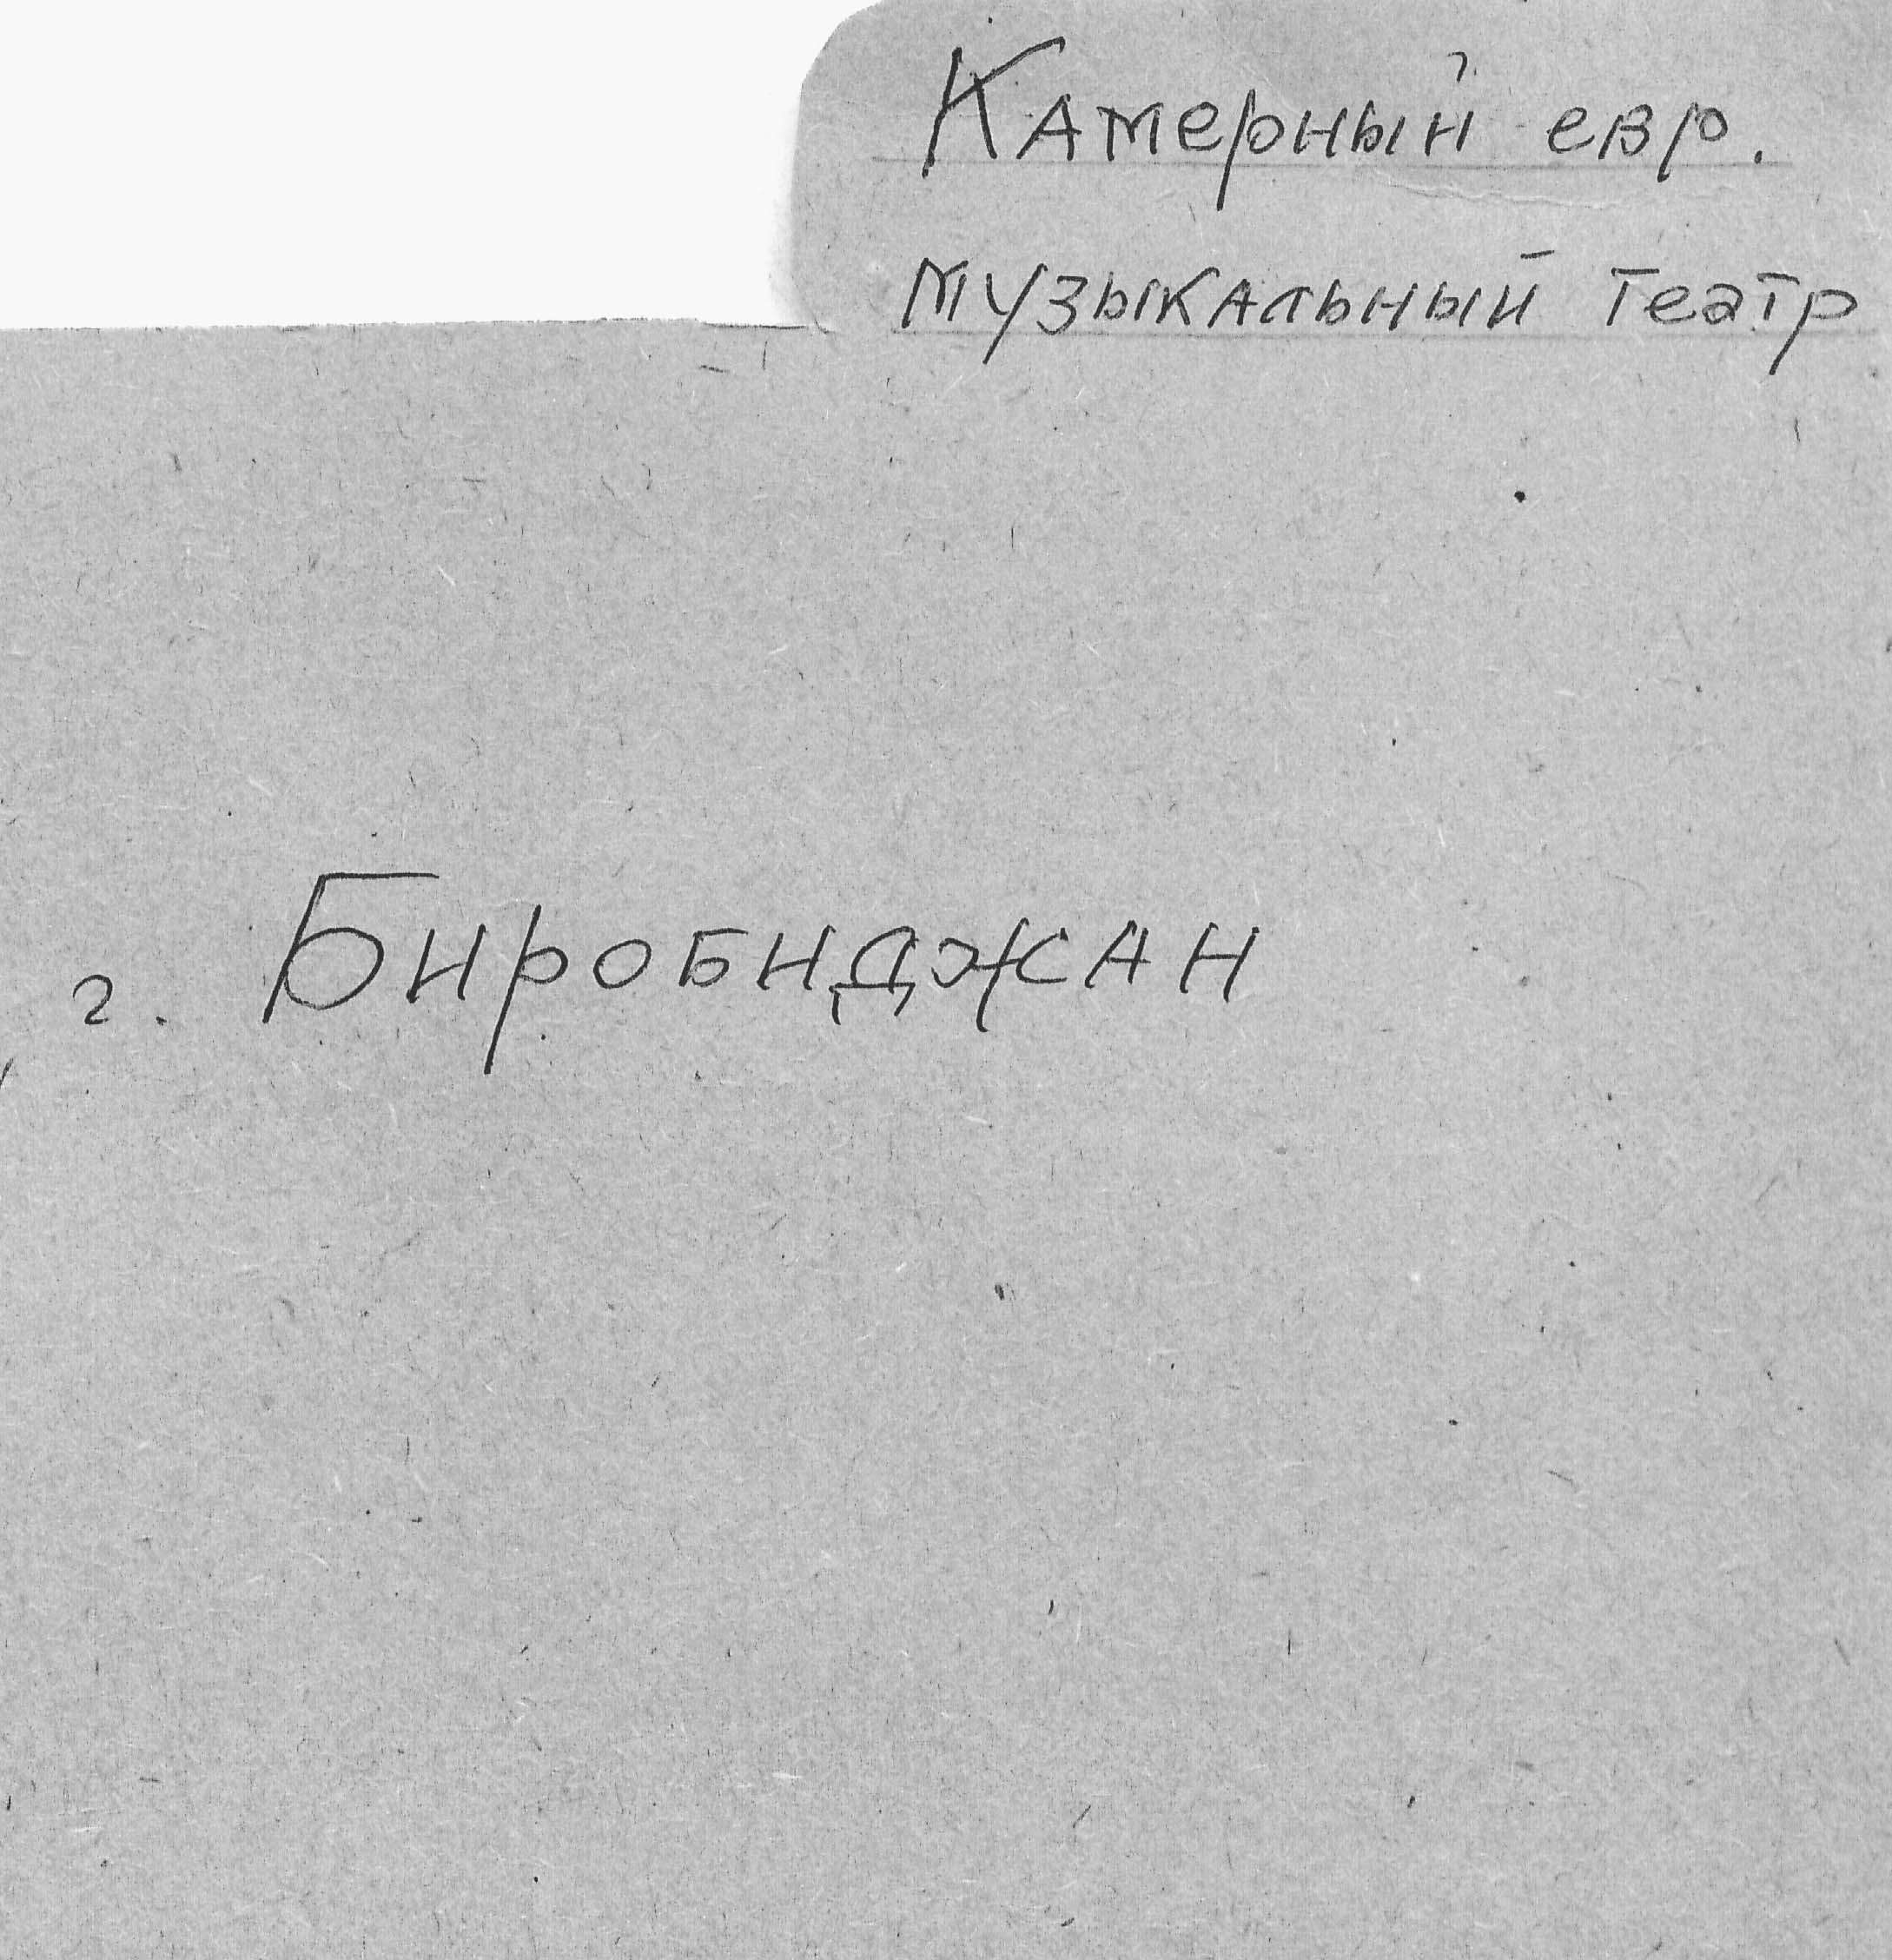 Камерный евр.
музыкальный театр
г. Биробиджан